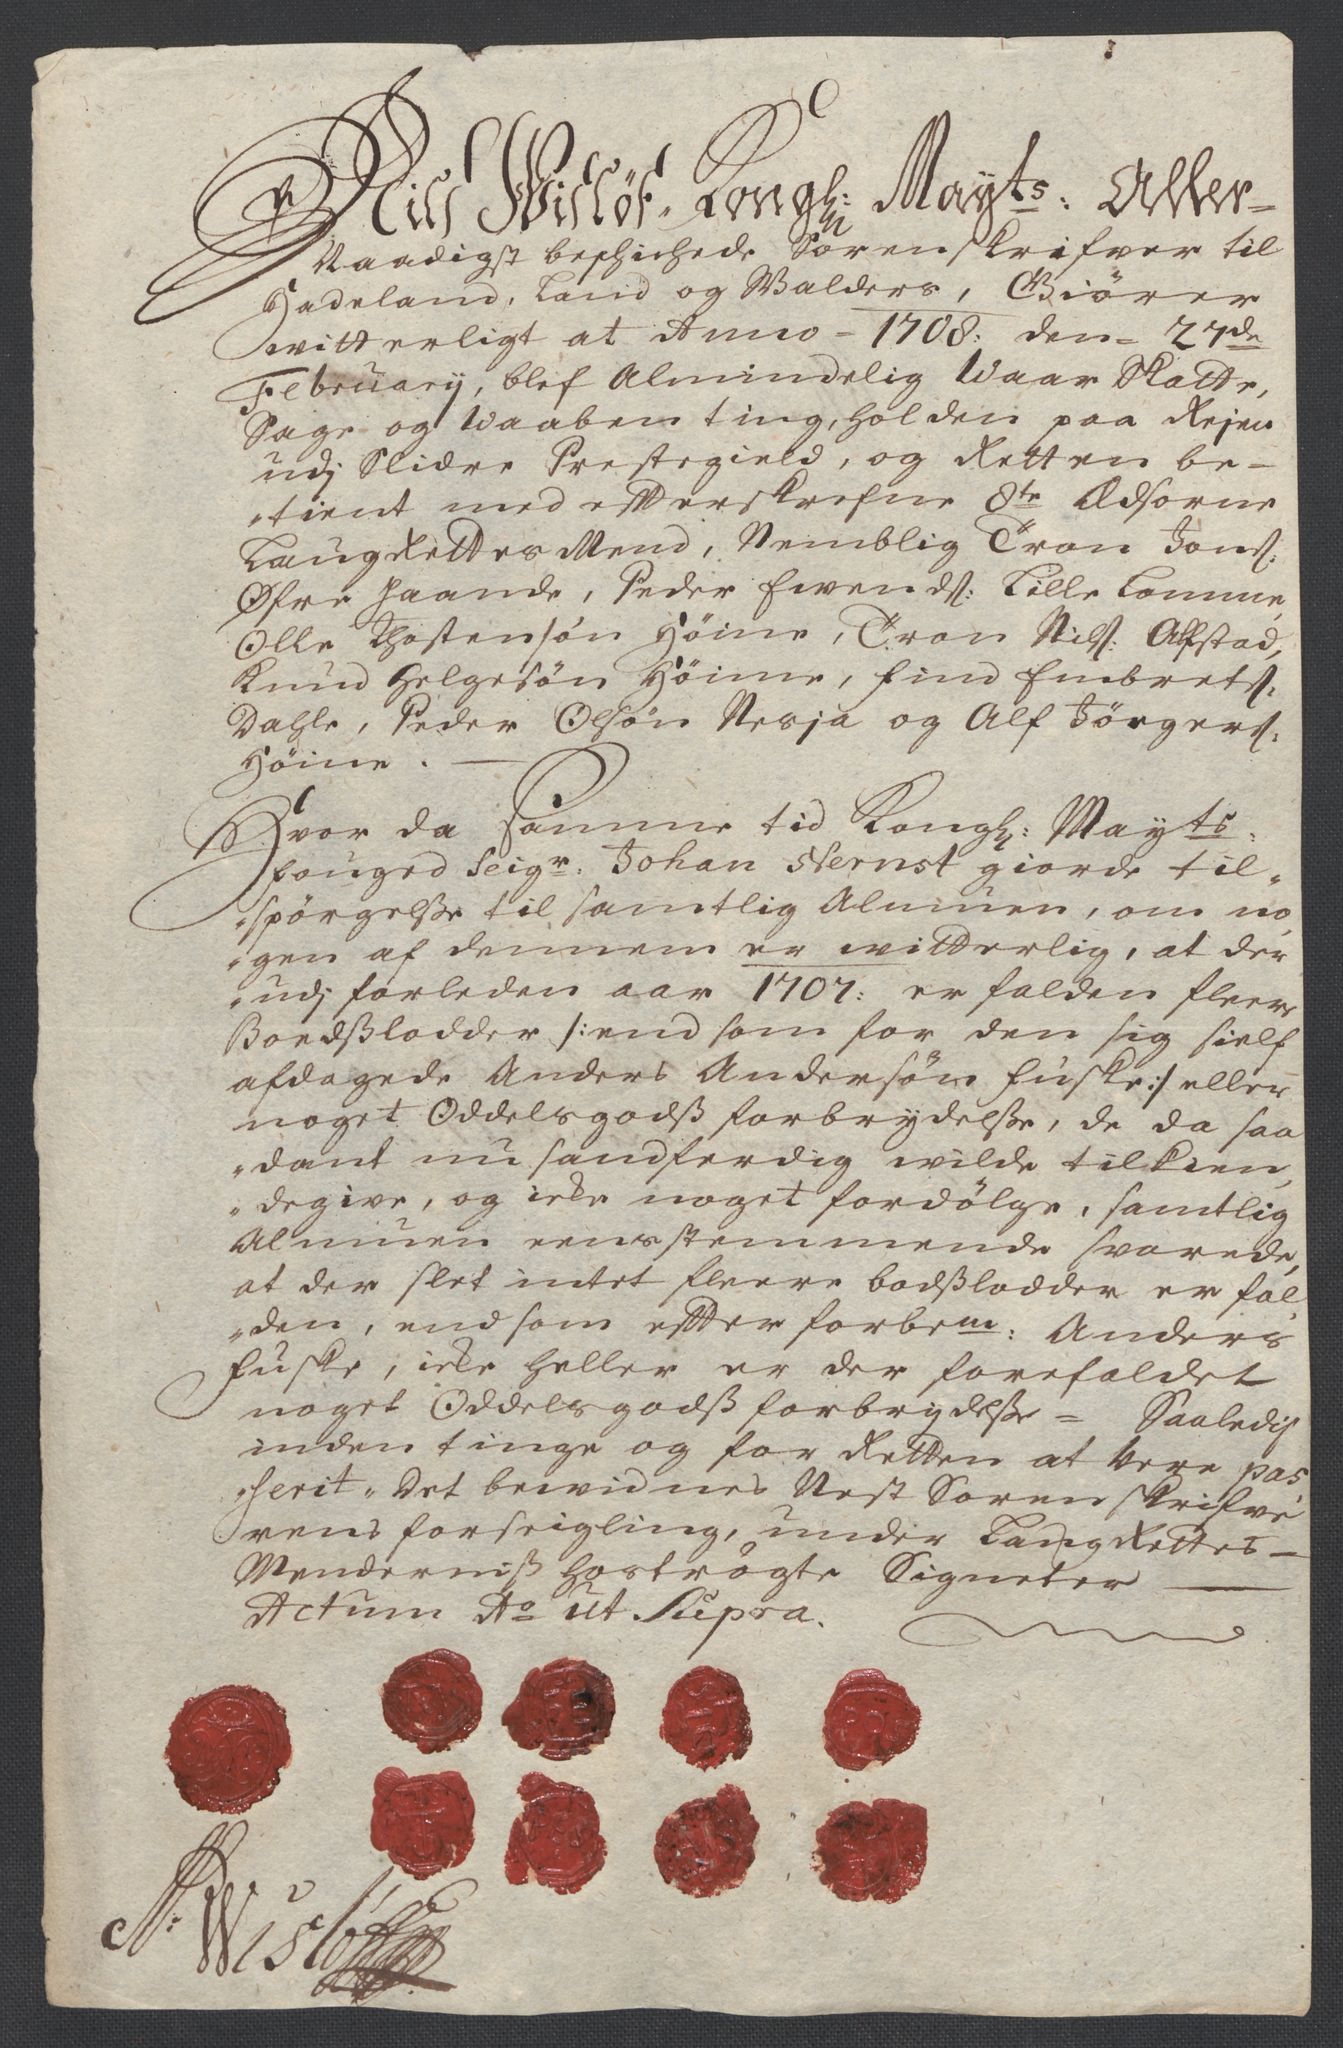 Niels Wislöf, Kongl: Mayts: Aller-
Naadigst beschichede Sörenskrifver til
Hadeland, Land og Walders, Giörer
witterligt at Anno - 1708: den - 27de
February, blef Almindelig Waar Skatte,
Sage og Waaben ting, holden paa Rejen
udj Slidre Prestegield, og Retten be-
„tient med effterskrefne 8teÆdsorne
LaugRettes Mend, Nemblig Tron Jonß:
Öfre Haande, Peder Ewendß: Lille Lomme,
Olle Thostensön Höine, Tron Nilß: Alfstad,
Knud Helgesön Höine, Find Embretß:
Dahle, Peder Olsön Nesja og Alf Jörgerß:
Höine. —
Hvor da Samme tid Kongl: Mayts:
fouged Seigr: Johan Nernst giorde til„
„spörgelße til samtlig Almuen, om no
„gen af dennem er witterlig, at der
„udj forleden aar 1707: er falden fleere
Boedßlodder /: end som for den sig sielf
afdagede Anders Andersön Fuske :/ eller
noget Oddelsgodß forbrydelße, de da saa
„dant nu sandferdig wilde tilkien,
„degive, og icke noget fordölge, samtlig
Almuen eensstemmende svarede,
at der slet intet fleere bodßlodder er fal
„den, end som effter forbem: Anders
Fuske, icke heller er der forefaldet
noget Oddelsgodß forbrydelße = Saaledis
inden tinge og for Retten at Vere pas
„serit, Det bewidnes Nest Sorenskrifve
rens forseigling, under LaugRettes-
Menderniß hoströgte Signeter —
Actum Ao ut Supra.
N: Wislöff